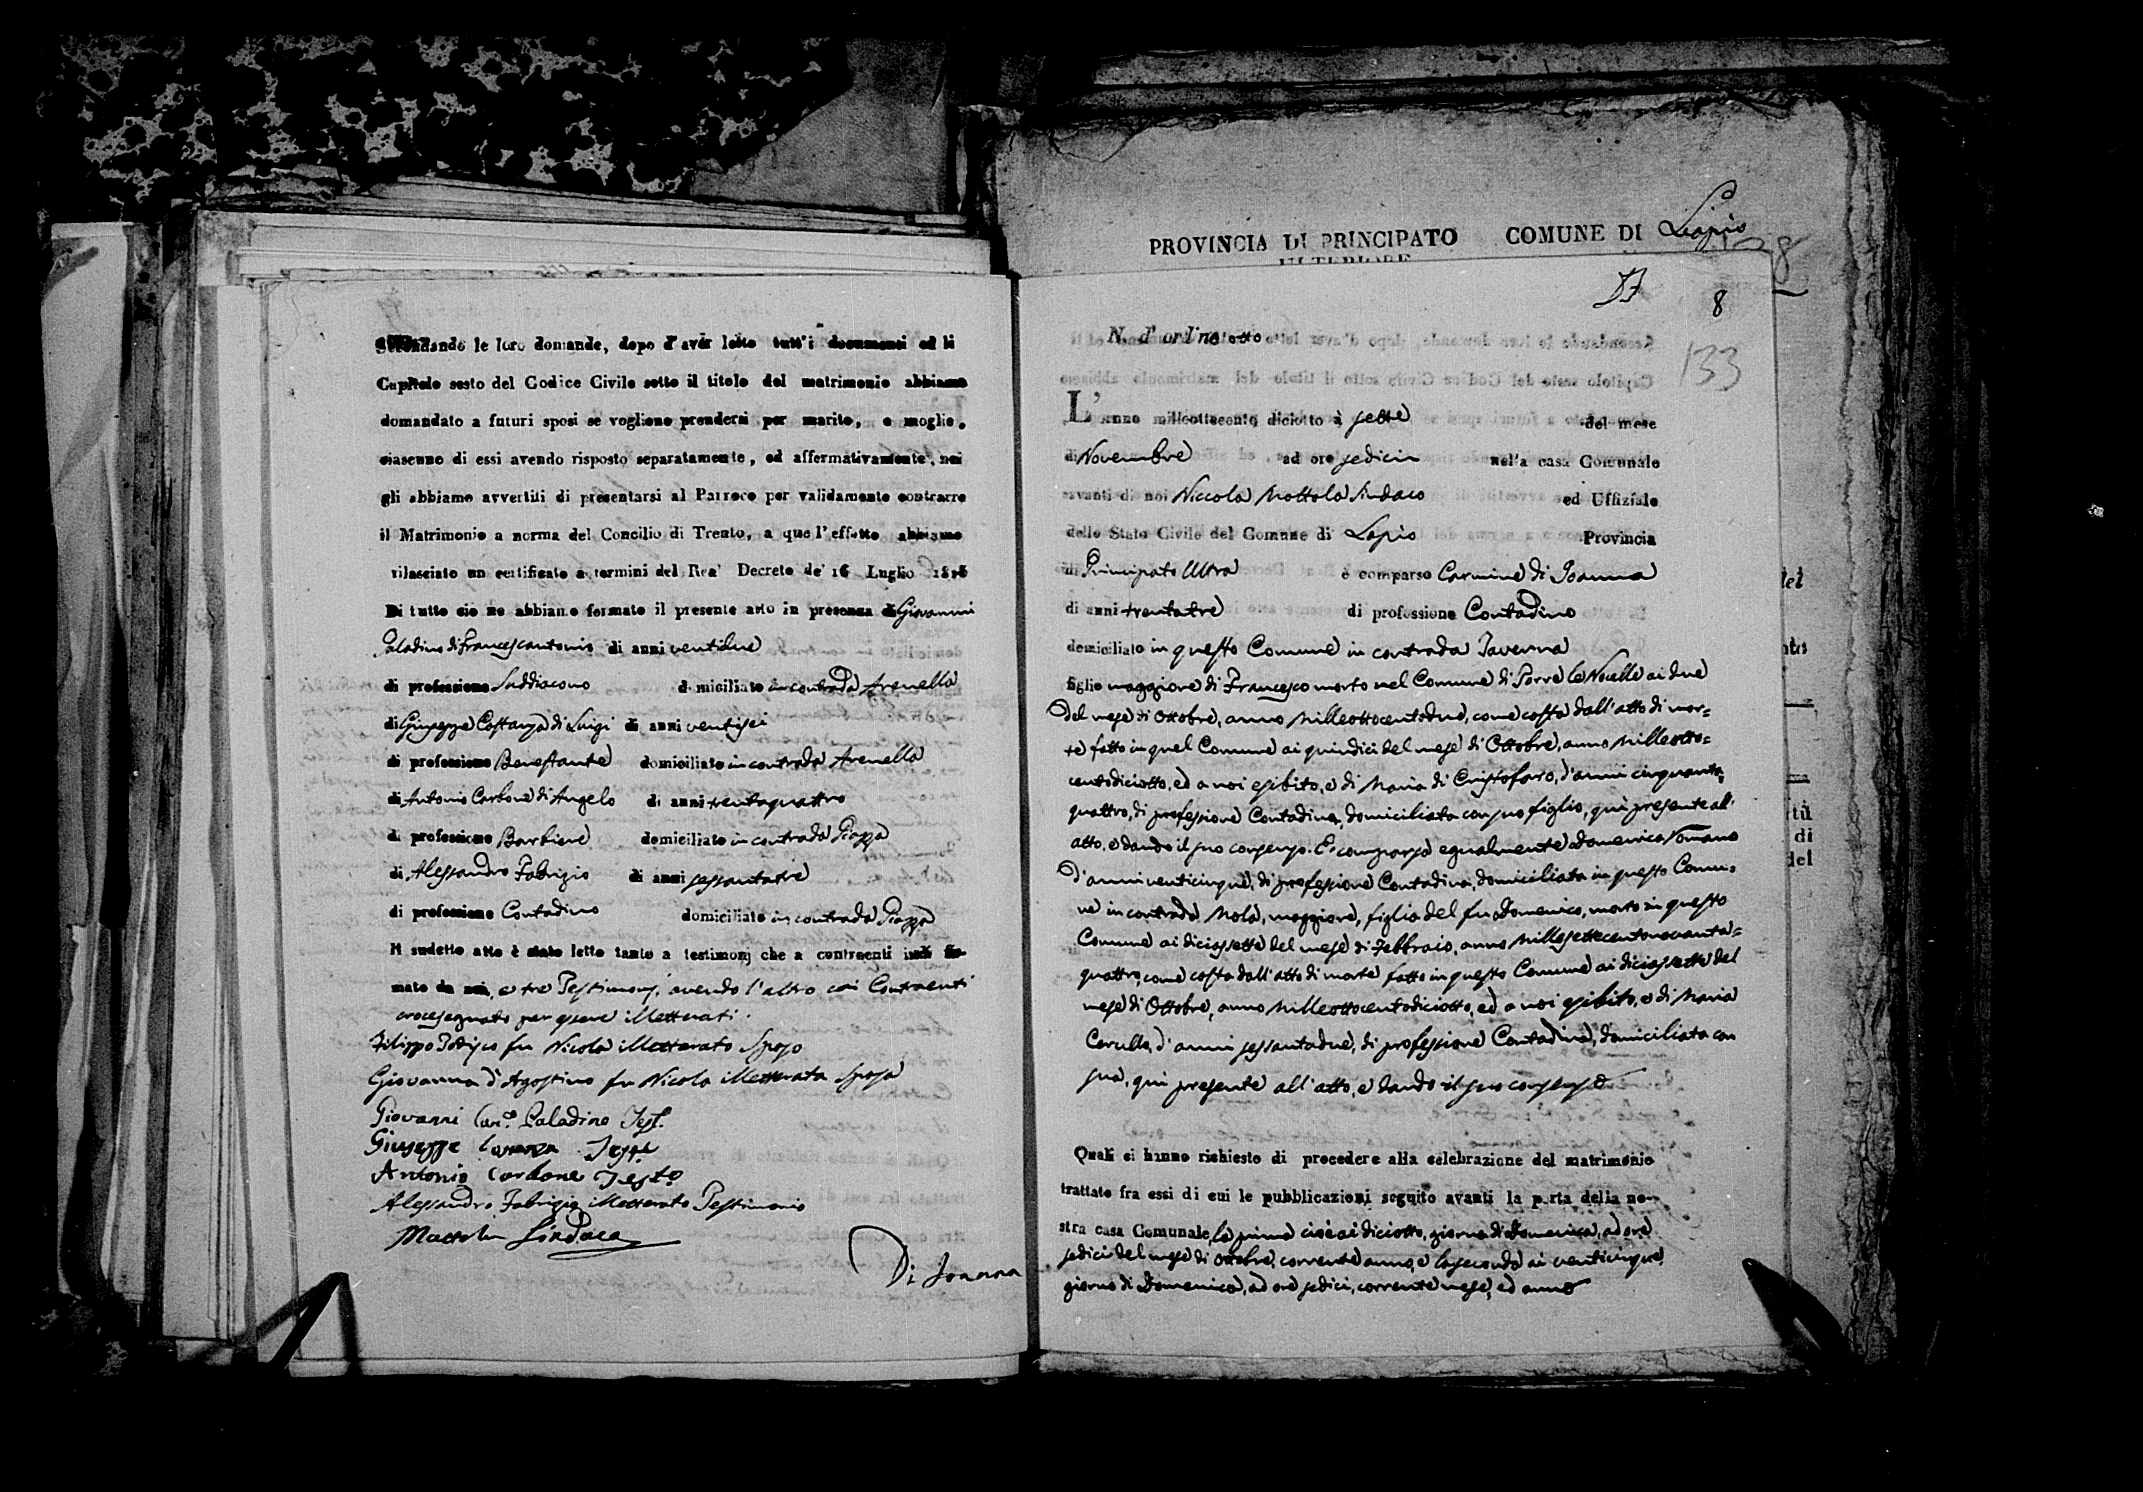 Secondando le loro domande, dopo d'aver letto tutt'i documenti ed il
Capitolo sesto del Codice Civile sotto il titolo del matrimonio abbiamo
domandato a futuri sposi se vogliono prendersi per marito, e moglie,
ciascuno di essi avendo risposto separatamente, ed affermativamente, noi
gli abbiamo avvertiti di presentarsi al Parroco per validamente contrarre
il Matrimonio a norma del Concilio di Trento, a que l'effetto abbiamo
rilasciato un certificato a termini del Rea' Decreto de' 16 Luglio
Di tutto cio ne abbiamo formato il presente atto in presenza di Giovanni
Paladino di Francescantonio di anni ventidue
di professione Suddiacono domiciliato in contrada Arenella
di Giuseppe Costanza di Luigi di anni ventisei
di professione Benestante domiciliato in contrada Arenella
di Antonio Carbone di Angelo di anni trentaquattro
di professione Barbiere domiciliato in contrada Piazza
di Alessandro Fabrizio di anni sessantatre
di professione Contadino domiciliato in contrada Piazza
Il sudetto atto è stato letto tanto a testimonj che a contraenti indi fir-
mato da noi, e tre Testimonj, avendo l'altro coi Contraenti
crocesegnato per essere illetterati.
Filippo fu Nicola illetterato Sposo
Giovanna d'Agostino fu Nicola illetterata Sposa
Giovanni Paladino Test.
Giuseppe
Antonio Carbone Testo
Alessandro Fabrizio illetterato Testimonio
Sindaco
Di Ioanna
PROVINCIA DI PRINCIPATO COMUNE DI Lapio
ULTERIORE
8
133
N. d'ordine otto
L'anno milleottocento diciotto à sette del mese
di Novembre ad ore sedici nella casa Comunale
avanti di noi Niccola Mottola Sindaco ed Uffiziale
dello Stato Civile del Comune di Lapio Provincia
di Principato Ultra è comparso Carmine di Ioanna
di anni trentatre di professione Contadino
domiciliato in questo Comune in contrada Taverna
figlio maggiore di Francesco morto nel Comune di Torre le Nocelle ai due
del mese di Ottobre, anno milleottocentodue, come costa dall'atto di mor=
te fatto in quel Comune ai quindici del mese di Ottobre, anno milleotto=
centodiciotto, ed a noi esibito, e di Maria di Cristofaro, d'anni cinquanta
quattro, di professione Contadina, domiciliata con suo figlio, qui presente all'
atto, e dando il suo consenso. E' comparsa egualmente Domenica Romano
d'anni venticinque, di professione Contadina, domiciliata in questo Comu=
ne in contrada Mola, maggiore, figlia del fu Domenico, morto in questo
Comune ai diciassette del mese di Febbraio, anno millesettecentonovanta=
quattro, come costa dall'atto di morte fatto in questo Comune ai diciassette del
mese di Ottobre, anno milleottocentodiciotto, ed a noi esibito, e di Maria
Carullo, d'anni sessantadue, di professione Contadina, domiciliata con
sua, qui presente all'atto, e dando il suo consenso
Quali ci hanno richiesto di procedere alla celebrazione del matrimonio
trattato fra essi di cui le pubblicazioni seguito avanti la porta della no-
stra casa Comunale, la prima cioè ai diciotto, giorno di Domenica, ad ore
sedici del mese di Ottobre, corrente anno, e la seconda ai venticinque,
giorno di Domenica, ad ore sedici, corrente mese, ed anno